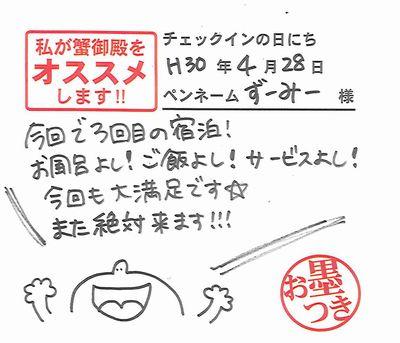 私が蟹御殿を
オススメ
します!!
チェックインの日にち
H30 年 4 月 28 日
ペンネーム ずーみー 様
今回で3回目の宿泊!
お風呂よし!ご飯よし!サービスよし!
今回も大満足です☆
また絶対来ます!!!
お墨つき